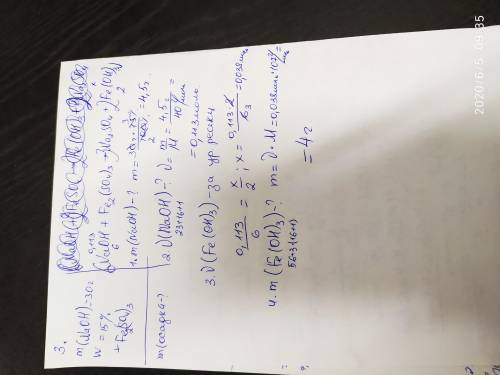 3.
m(NaOH)=30г
w = 15%
+Fe₂(SO₄)₃
m(осадка)-?
0,113 x
6NaOH + Fe₂(SO₄)₃ → 3Na₂SO₄ + 2Fe(OH)₃
6 2
1. m(NaOH)-? m = 30г·15% / 100% = 4,5г
2. ν(NaOH)-? ν = m/M = 4,5г / 40 г/моль =
23+16+1
= 0,113моль
3. ν(Fe(OH)₃) - за ур. реакц
0,113/6 = x/2; x = 0,113·2/6 = 0,038моль
4. m(Fe(OH)₃)-? m = ν·M = 0,038моль·107г/моль =
56+3·(16+1)
= 4г.
2020/6/5 09:35